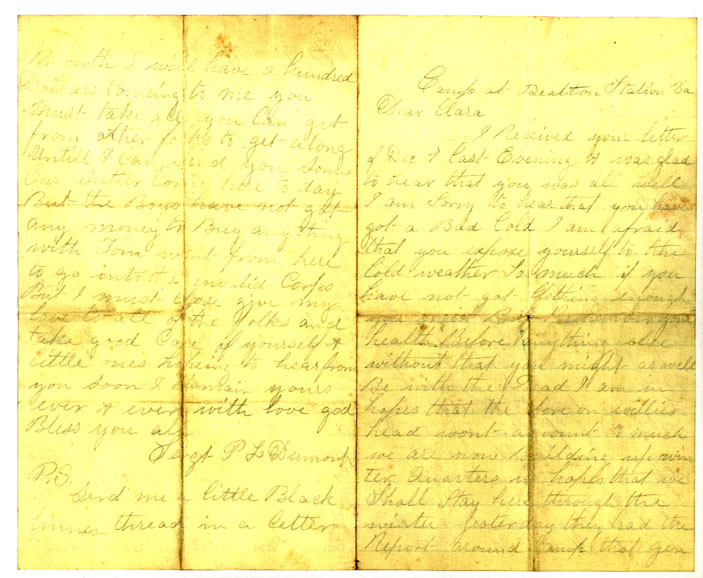 Camp at Bealton Station Va
Dear Clara
I Recived your letter
of Dec 7 Last Evening & was glad
to hear that you was all well
I am Sorry to hear that you have
got a Bad Cold I am afraid
that you expose yourself to the
Cold weather to much if you
have not got Clothing enough
you must Buy
health Before Anything else
without that you might as well
Be with the Dead I am in
hopes that the Sore on willies
head wont amount to much
we are now Building up win
ter Quarters in hopes that we
Shall Stay here through the
winter yesterday they had the
Report around Camp that gen
Month I will have a hundred
Dollars Comeing to me you
Must take all you Can get
from other folks to get along
Untill I Can send you Some
Our sutler Come here to day
But the Boys have not got
any money to Buy any thing
with Tom went from here
to go into the invalid Corps
But I must Close give my
love to all of the folks and
take good Care of yourself &
little ones hopeing to hear from
you Soon I Remain yours
ever & ever with love god
Bless you all
Sergt P L Dumont
P.S.
Send me a little Black
linnen thread in a letter